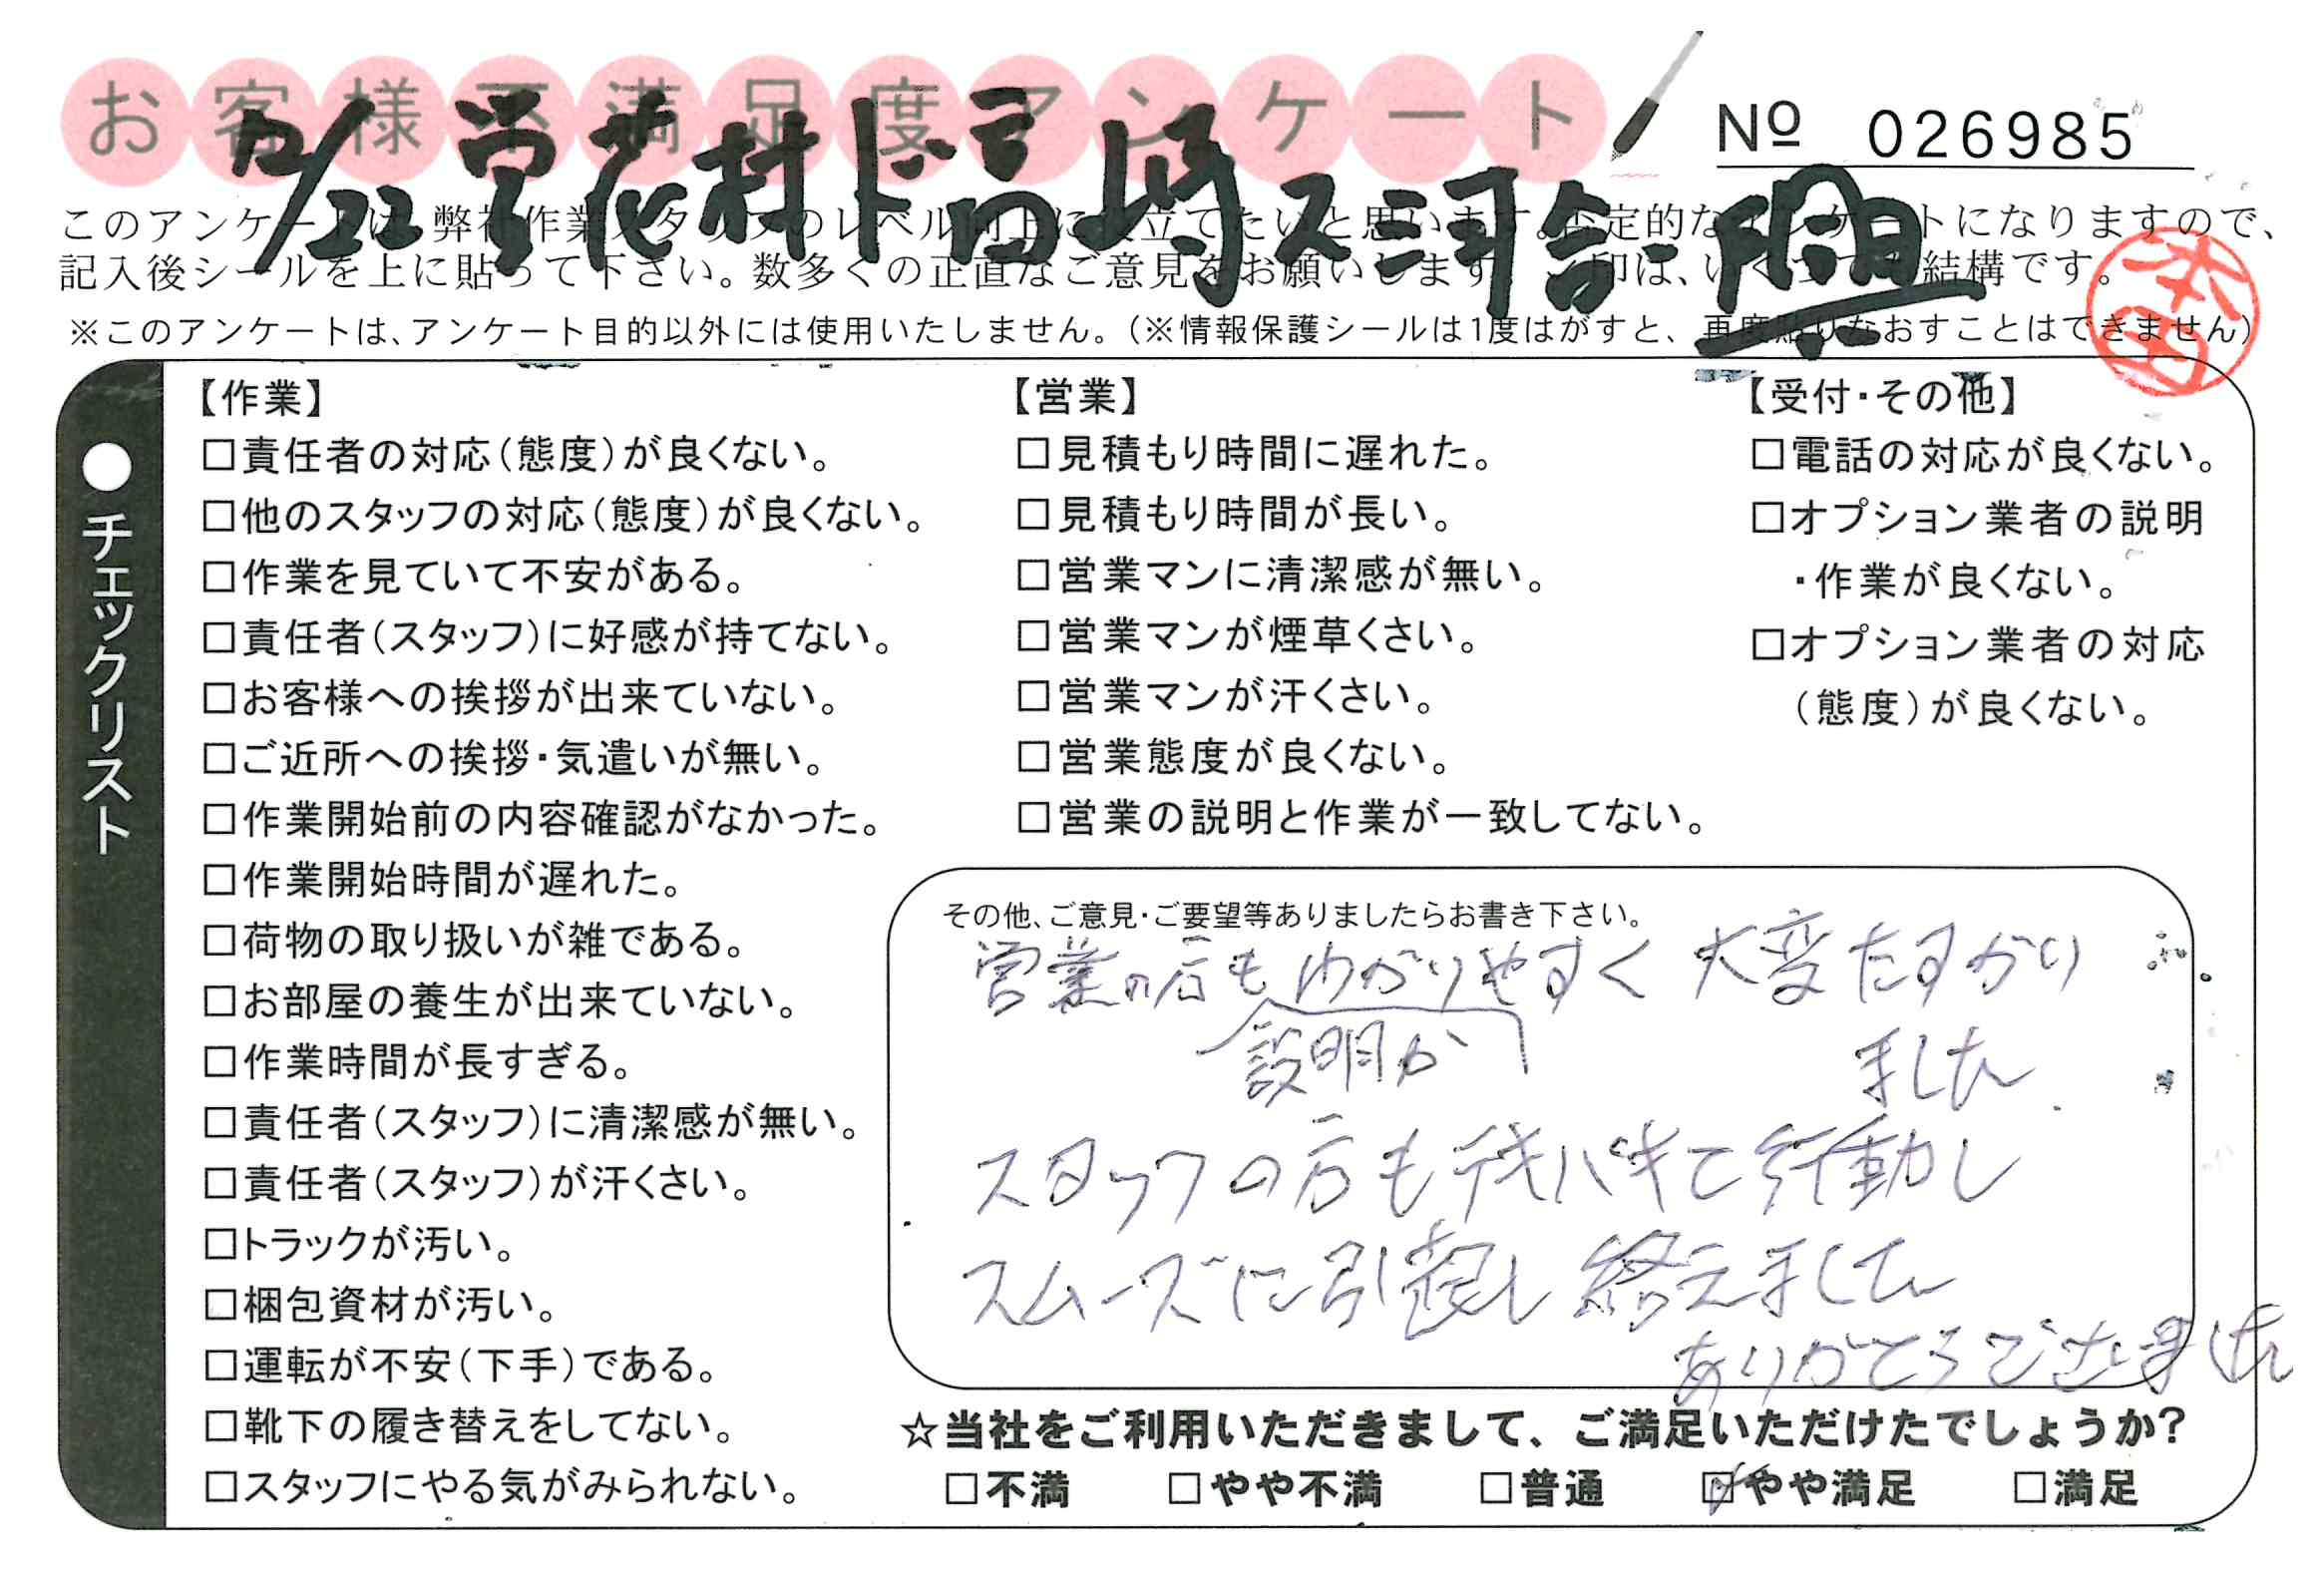 お客様不満足度アンケート
№ 026985
7/22 営 花村 ド 高崎 ス 河合 興
このアンケートは、弊社作業スタッフのレベル向上に役立てたいと思います。否定的なアンケートになりますので、
記入後シールを上に貼って下さい。数多くの正直なご意見をお願いします。✓印は、いくつでも結構です。
※このアンケートは、アンケート目的以外には使用いたしません。(※情報保護シールは1度はがすと、再度貼りなおすことはできません)
本田
●チェックリスト
【作業】
□責任者の対応(態度)が良くない。
□他のスタッフの対応(態度)が良くない。
□作業を見ていて不安がある。
□責任者(スタッフ)に好感が持てない。
□お客様への挨拶が出来ていない。
□ご近所への挨拶・気遣いが無い。
□作業開始前の内容確認がなかった。
□作業開始時間が遅れた。
□荷物の取り扱いが雑である。
□お部屋の養生が出来ていない。
□作業時間が長すぎる。
□責任者(スタッフ)に清潔感が無い。
□責任者(スタッフ)が汗くさい。
□トラックが汚い。
□梱包資材が汚い。
□運転が不安(下手)である。
□靴下の履き替えをしてない。
□スタッフにやる気がみられない。
【営業】
□見積もり時間に遅れた。
□見積もり時間が長い。
□営業マンに清潔感が無い。
□営業マンが煙草くさい。
□営業マンが汗くさい。
□営業態度が良くない。
□営業の説明と作業が一致してない。
【受付・その他】
□電話の対応が良くない。
□オプション業者の説明
・作業が良くない。
□オプション業者の対応
(態度)が良くない。
その他、ご意見・ご要望等ありましたらお書き下さい。
営業の方もわかりやすく 大変たすかり
説明が
ました
スタッフの方もテキパキと行動し
スムーズに引越し終えました
ありがとうございました
☆当社をご利用いただきまして、ご満足いただけたでしょうか?
□不満 □やや不満 □普通 ☑やや満足 □満足